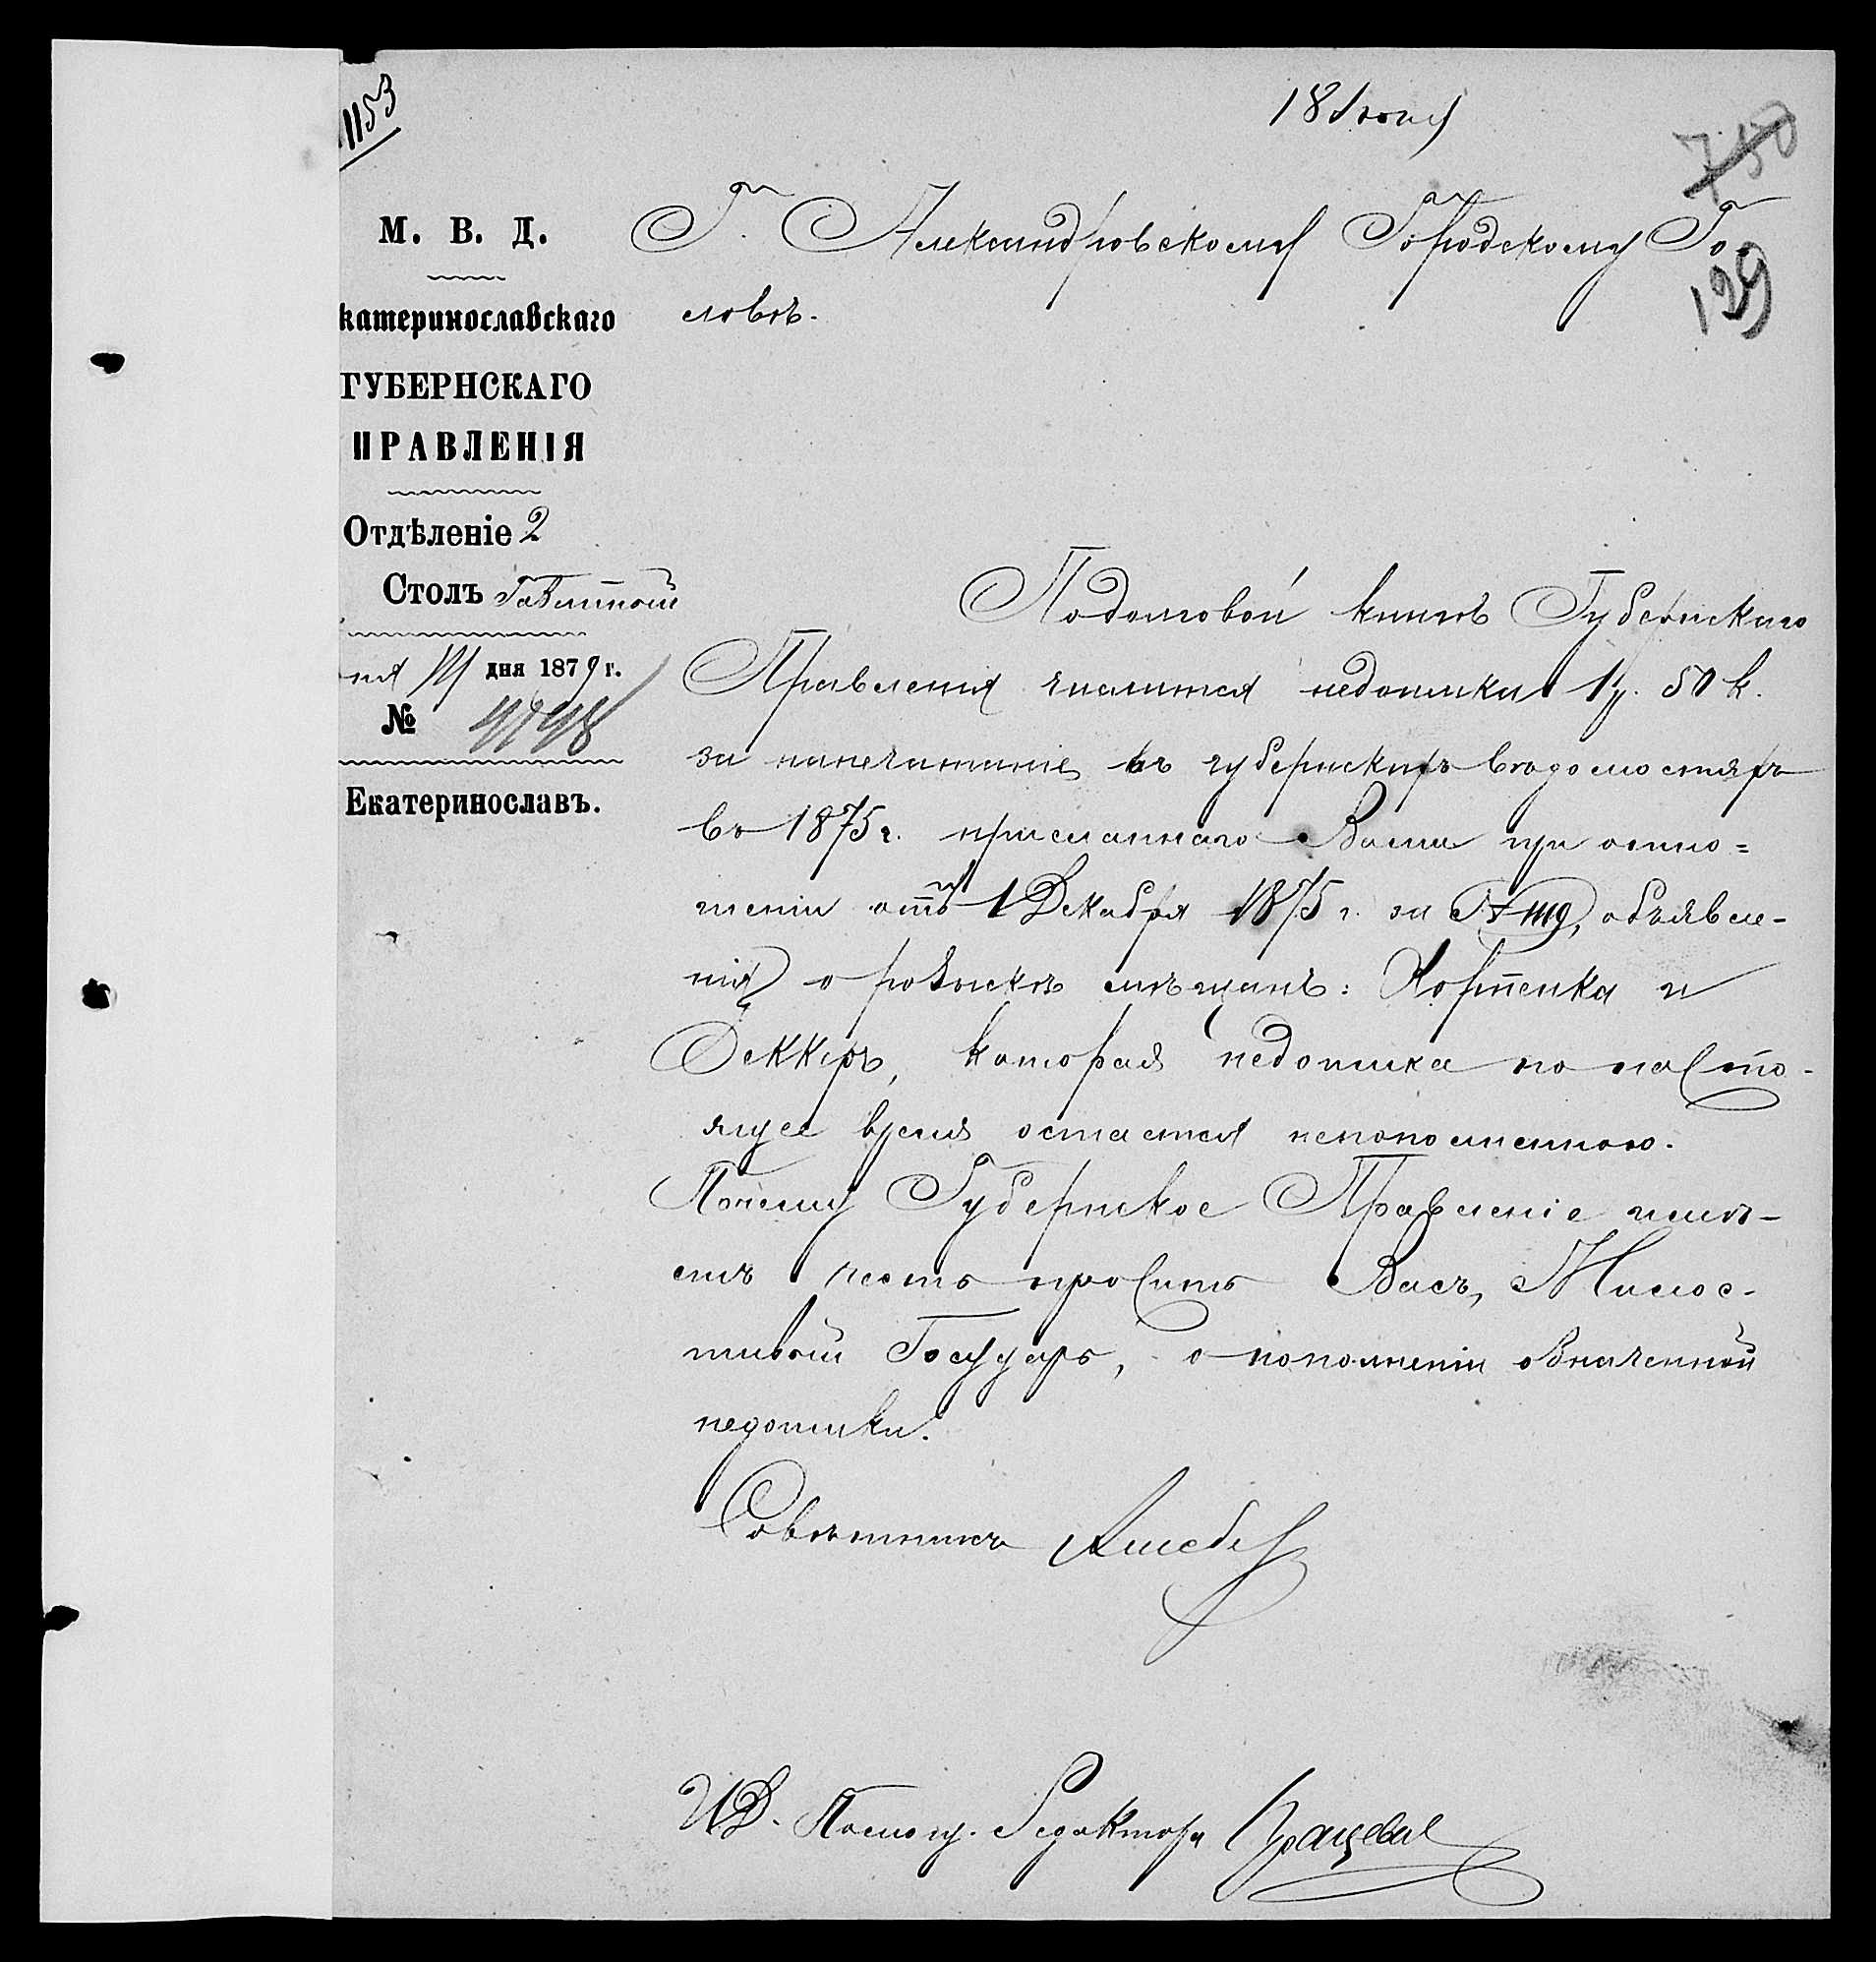 1153
18 Іюня
750
М. В. Д.
катеринославскаго
ГУБЕРНСКАГО
ПРАВЛЕНІЯ
Отдѣленіе 2
Столъ Газетный
дня 1879 г.
№
Екатеринославъ.
Г. Александровскому Городскому Го-
139
ловѣ.
По долговой книгѣ Губернскаго
Правленія числится недоимки 1 р. 50 к.
за напечатаніе въ губернскихъ вѣдомостяхъ
въ 1875 г. присланнаго Вами при отно=
шеніи отъ 1 Декабря 1875 г. за № объявле-
нія о розыскѣ мѣщанъ: и
Деккеръ, которая недоимка по насто-
ящее время остается непополненною.
Почему Губернское Правленіе имѣ-
етъ честь просить Васъ, Милос-
тивый Государь, о пополненіи означенной
недоимки.
Совѣтникъ
И.Д. Помощ. Редактора